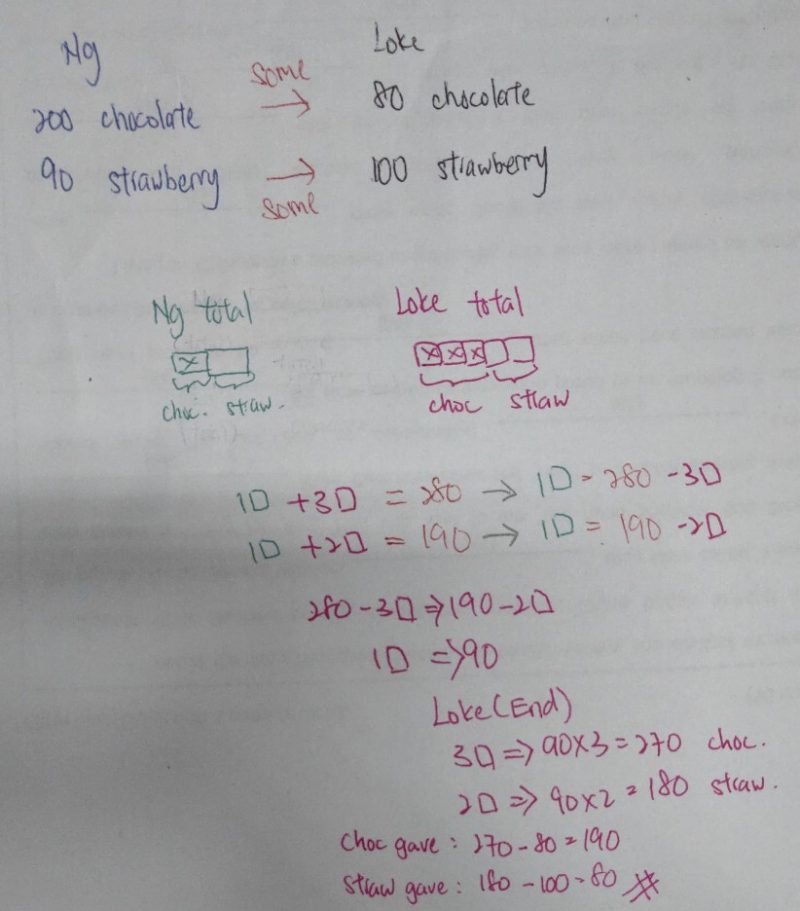 Ng Loke
200 chocolate some → 80 chocolate
90 strawberry → some 100 strawberry
Ng total Loke total
choc. straw. choc straw
1□ + 3□ = 280 → 1□ = 280 - 3□
1□ + 2□ = 190 → 1□ = 190 - 2□
280 - 3□ ⇒ 190 - 2□
1□ ⇒ 90
Loke (End)
3□ ⇒ 90×3 = 270 choc.
2□ ⇒ 90×2 = 180 straw.
Choc gave : 270 - 80 = 190
Straw gave : 180 - 100 = 80